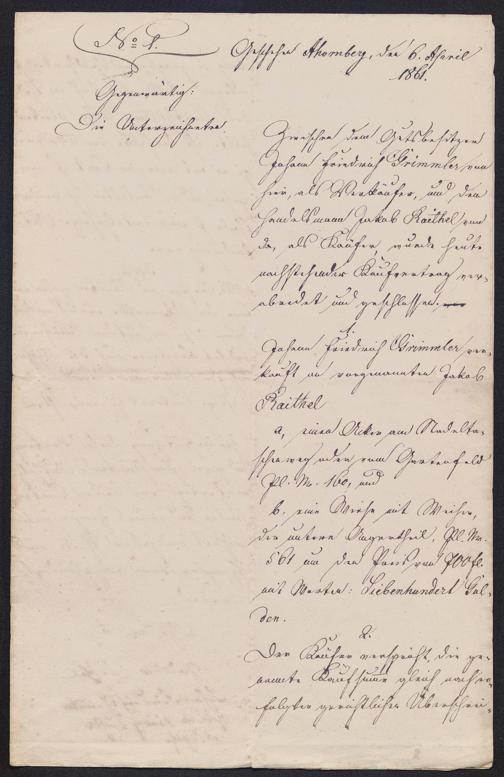 No 1.
Geschehen Thornberg, den 6. April
1861.
Gegenwärtig:
Die Unterzeichneten.
Zwischen dem Gutsbesitzer
Johann Friedrich Grimmler von
hier, als Verkäufer, und dem
Handelsmann Jakob Raithel von
da, als Käufer, wurde heute
nachstehender Kaufvertrag ver-
abredet und geschlossen.
1.
Johann Friedrich Grimmler ver-
kauft an vorgenannten Jakob
Raithel
a, einen Acker am
oder vom Gartenfeld
Pl. Nr. 160, und
b. eine Wiese mit Weiher,
der untere Angertheil, Pl. Nr.
561 um den Preis von 700 fl.
mit Worten: Siebenhundert Gul-
den.
2.
Der Käufer verspricht, die ge-
nannte Kaufsumme gleich nach er-
folgter gerichtlicher Überschrei-